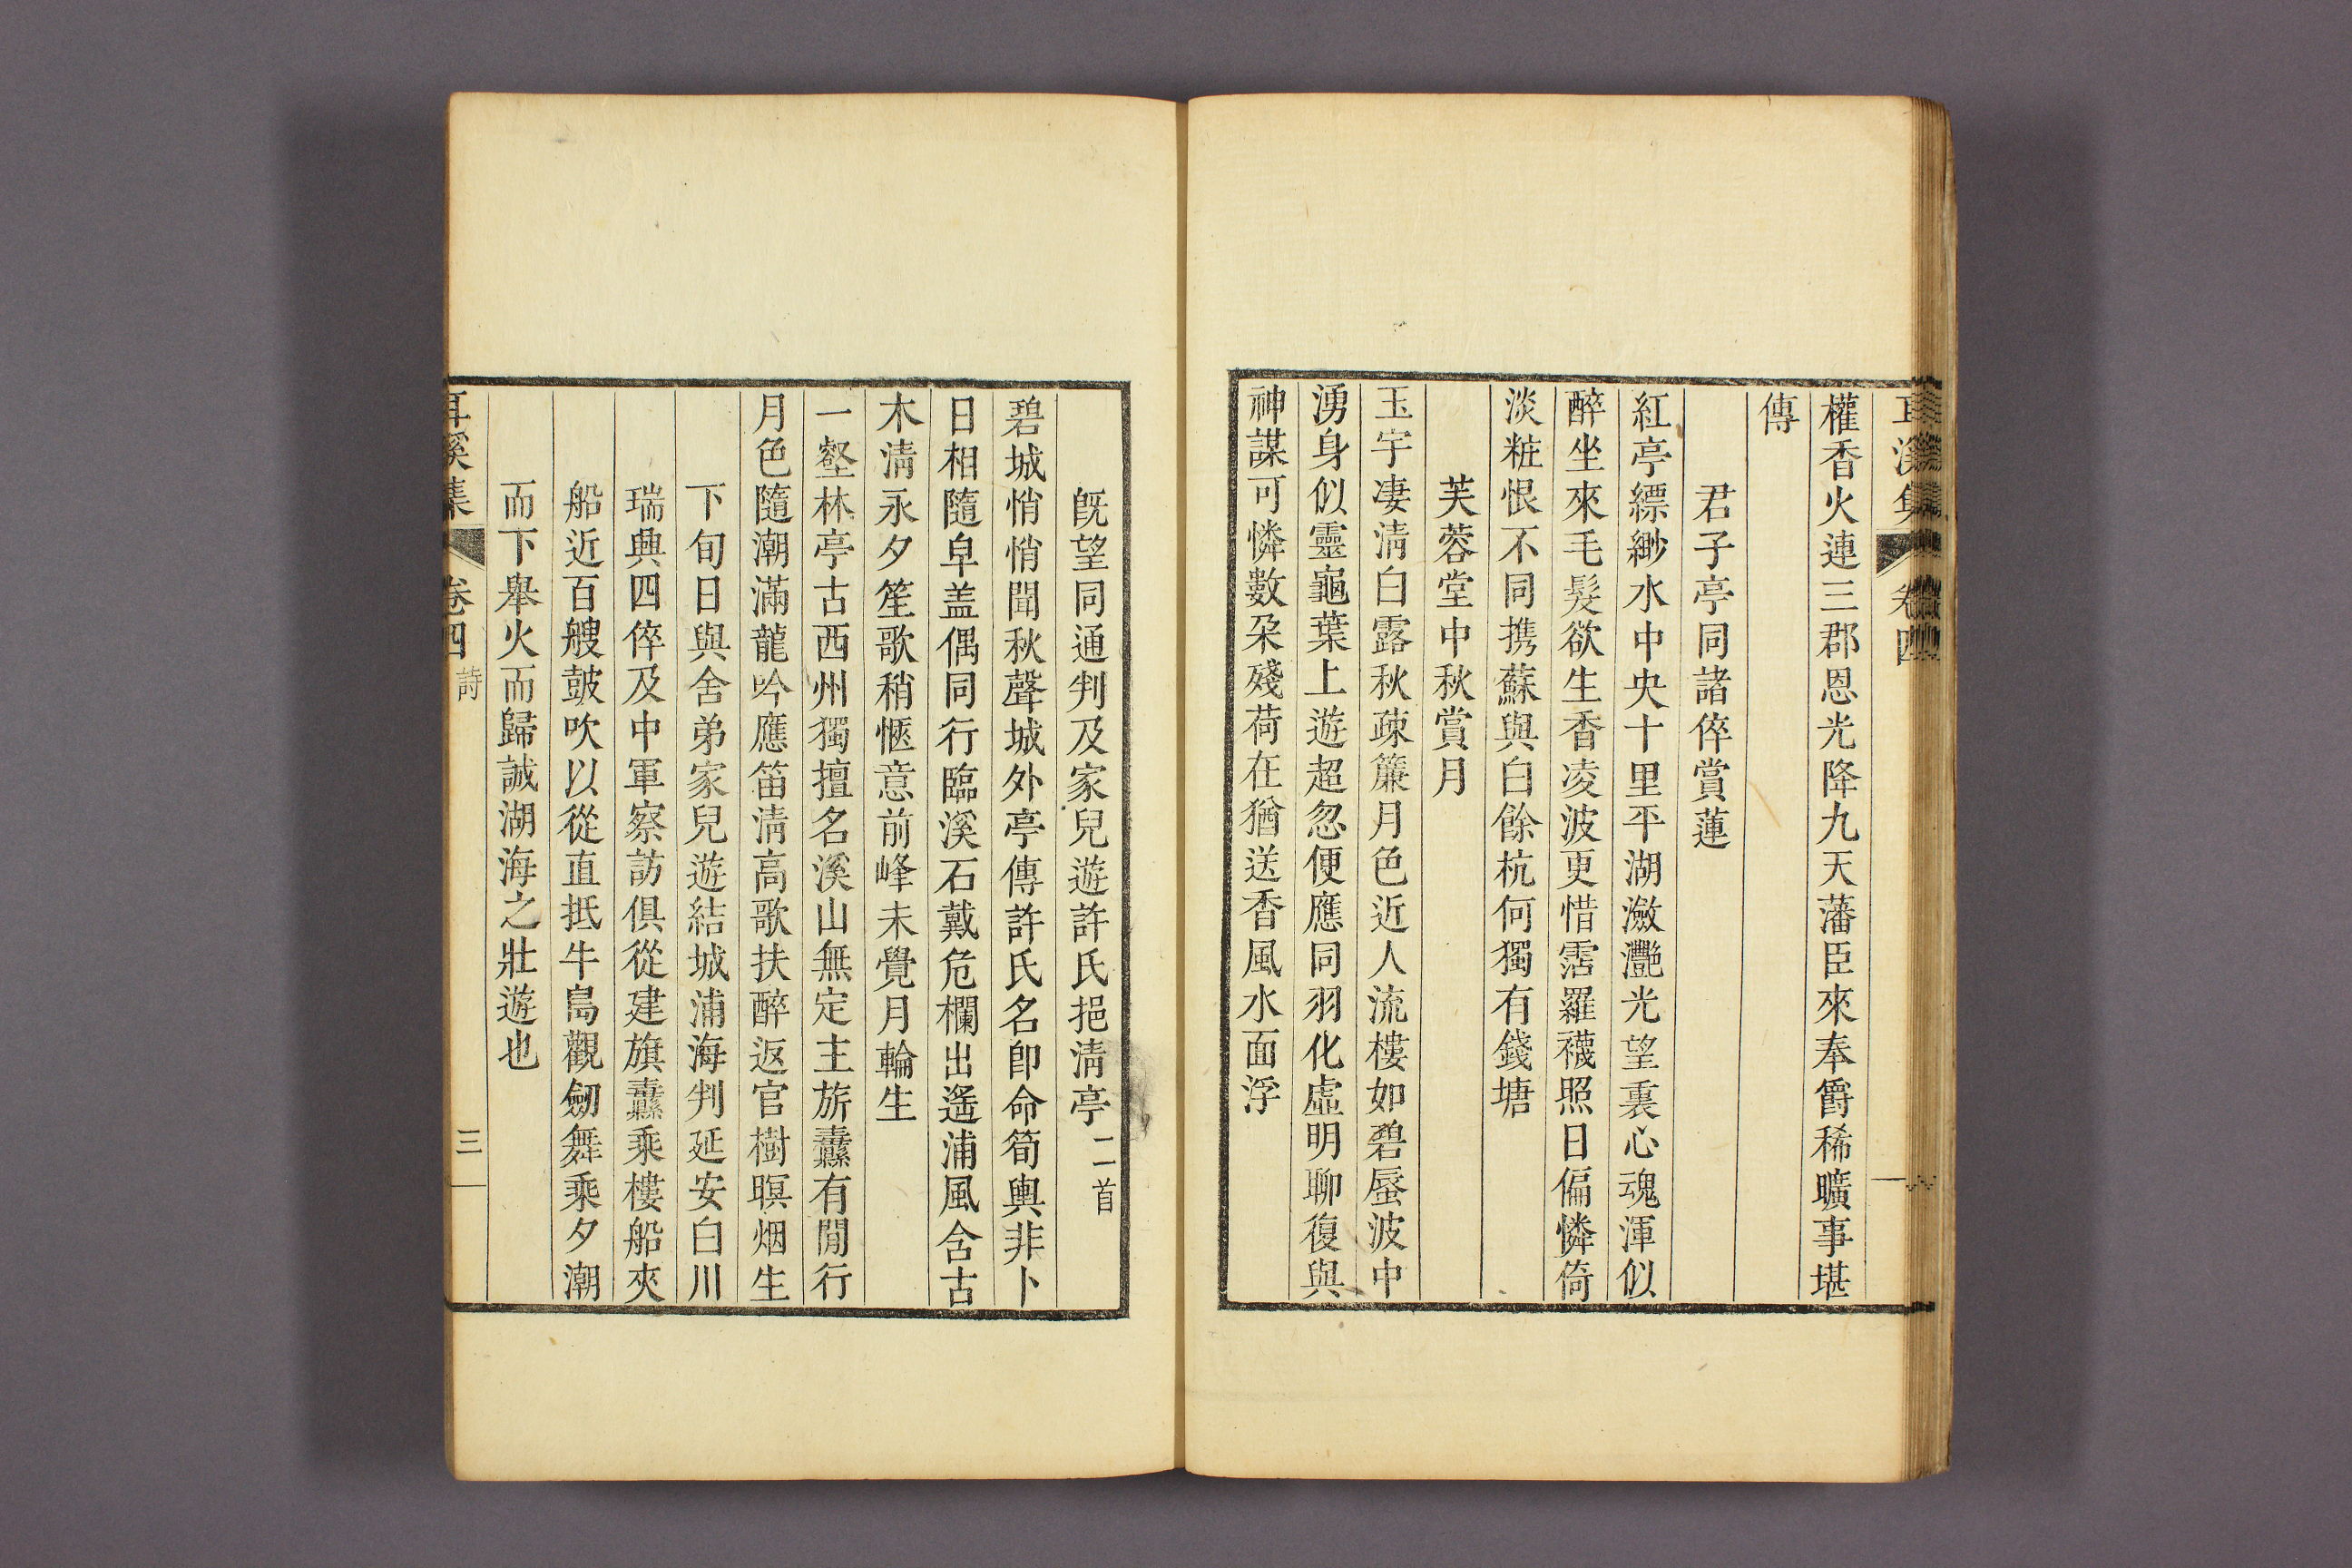 權香火連三郡恩光降九天藩臣來奉爵稀曠事堪
傳
君子亭同諸倅賞蓮
紅亭縹緲水中央十里平湖瀲灎光望裏心魂渾似
醉坐來毛髮欲生香凌波更惜霑羅襪照日偏憐倚
淡粧恨不同携蘇與白餘杭何獨有錢塘
芙蓉堂中秋賞月
玉宇凄淸白露秋疎簾月色近人流樓如碧蜃波中
湧身似靈龜葉上遊超忽便應同羽化虛明聊復與
神謀可憐數朶殘荷在猶送香風水面浮
旣望同通判及家兒遊許氏挹淸亭 二首
碧城悄悄聞秋聲城外亭傳許氏名卽命筍輿非卜
日相隨皁盖偶同行臨溪石戴危欄出遙浦風含古
木淸永夕笙歌稍愜意前峰未覺月輪生
一壑林亭古西州獨擅名溪山無定主旂纛有閒行
月色隨潮滿龍吟應笛淸高歌扶醉返官樹暝烟生
下旬日與舍弟家兒遊結城浦海判延安白川
瑞興四倅及中軍察訪俱從建旗纛乘樓船夾
船近百艘鼓吹以從直抵牛島觀劒舞乘夕潮
而下擧火而歸誠湖海之壯遊也
耳溪集 卷四 詩 三